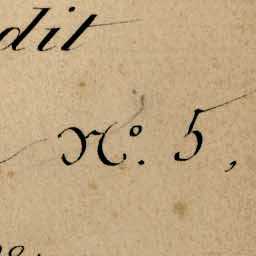 dit
N°. 5,